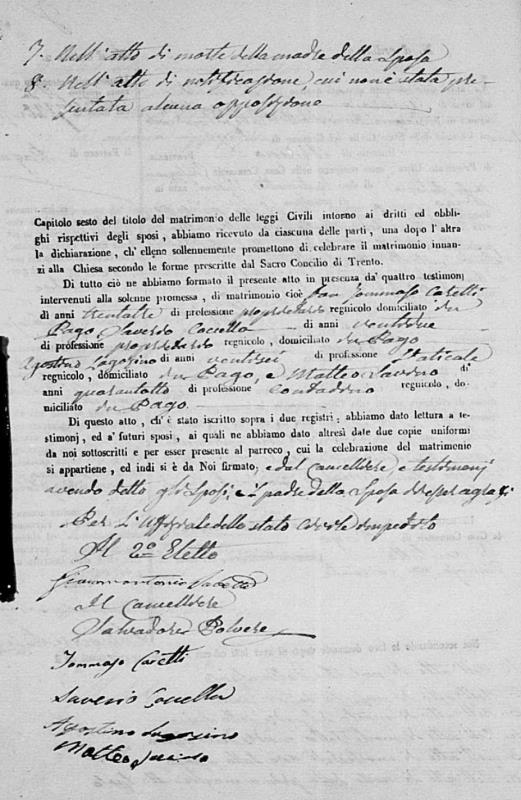 7. Nell'atto di morte della madre della Sposa
8. Nell'atto di notificazione, cui non è stata pre-
sentata alcuna opposizione
Capitolo sesto del titolo del matrimonio delle leggi Civili intorno ai dritti ed obbli-
ghi rispettivi degli sposi, abbiamo ricevuto da ciascuna delle parti, una dopo l'altra
la dichiarazione, ch'elleno sollennemente promettono di celebrare il matrimonio innan-
zi alla Chiesa secondo le forme prescritte dal Sacro Concilio di Trento.
Di tutto ciò ne abbiamo formato il presente atto in presenza da' quattro testimonj
intervenuti alla solenne promessa, di matrimonio cioè Tommaso Caretti
di anni trentatre di professione proprietario regnicolo domiciliato in
Pago Saverio di anni ventidue
di professione proprietario regnicolo, domiciliato in Pago
Agostino di anni ventisei di professione
regnicolo, domiciliato in Pago, e Matteo di
anni quarantotto di professione contadino regnicolo, do-
miciliato in Pago
Di questo atto, ch'è stato iscritto sopra i due registri; abbiamo dato lettura a te-
stimonj, ed a' futuri sposi, ai quali ne abbiamo dato altresì date due copie uniformi
da noi sottoscritti e per esser presente al parroco, cui la celebrazione del matrimonio
si appartiene, ed indi si è da Noi firmato, e dal Cancelliere, e testimonj
avendo detto gli Sposi, e il padre della Sposa di esser
Per l'Uffiziale dello stato civile impedito
Il 2º Eletto
Il Cancelliere
Salvadore Polvere
Tommaso Caretti
Saverio
Agostino
Matteo